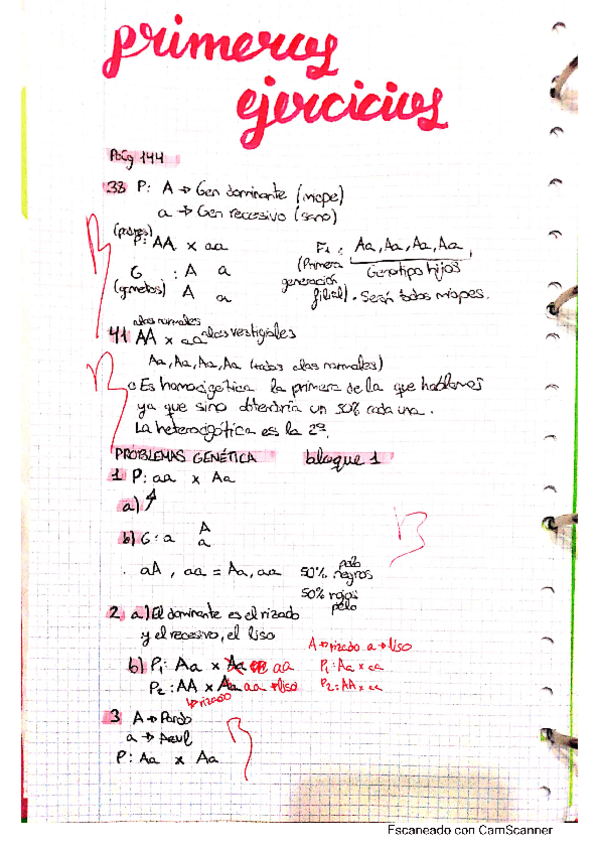 primeros
ejercicios
Pág 144
38 P: A → Gen dominante (miope)
a → Gen recessivo (sano)
(padres)
P: AA x aa
F1: Aa, Aa, Aa, Aa
(Primera generación filial)
Genotipo hijos
G : A a
(gametos) A a
· Serán todos miopes.
alas normales
41 AA x aa alas vestigiales
Aa, Aa, Aa, Aa (todas alas normales)
Es homocigótica la primera de la que hablamos
ya que sino obtendría un 50% cada una.
La heterocigótica es la 2ª.
PROBLEMAS GENÉTICA bloque 1
1 P: aa x Aa
a)
b) G: a A
a
. aA, aa = Aa, aa 50% pelo negros
50% rojos pelo
2 a) El dominante es el rizado
y el recesivo, el liso
A → rizado a → liso
b) P1: Aa x Aa aa
P1: Aa x aa
P2: AA x Aa aa → liso
P2: AA x aa
→ rizado
3 A → Pardo
a → Azul
P: Aa x Aa
Escaneado con CamScanner